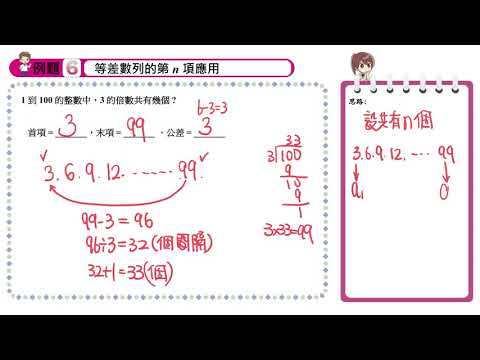 例題 6 等差數列的第 n 項應用
1 到 100 的整數中，3 的倍數共有幾個？
6-3=3
首項 = 3 ，末項 = 99 ，公差 = 3
3.6.9.12.……99.
99-3=96
96÷3=32(個間隔)
32+1=33(個)
33
3 100
9
10
9
1
3×33=99
思路：
設共有n個
3.6.9.12.……99
a1